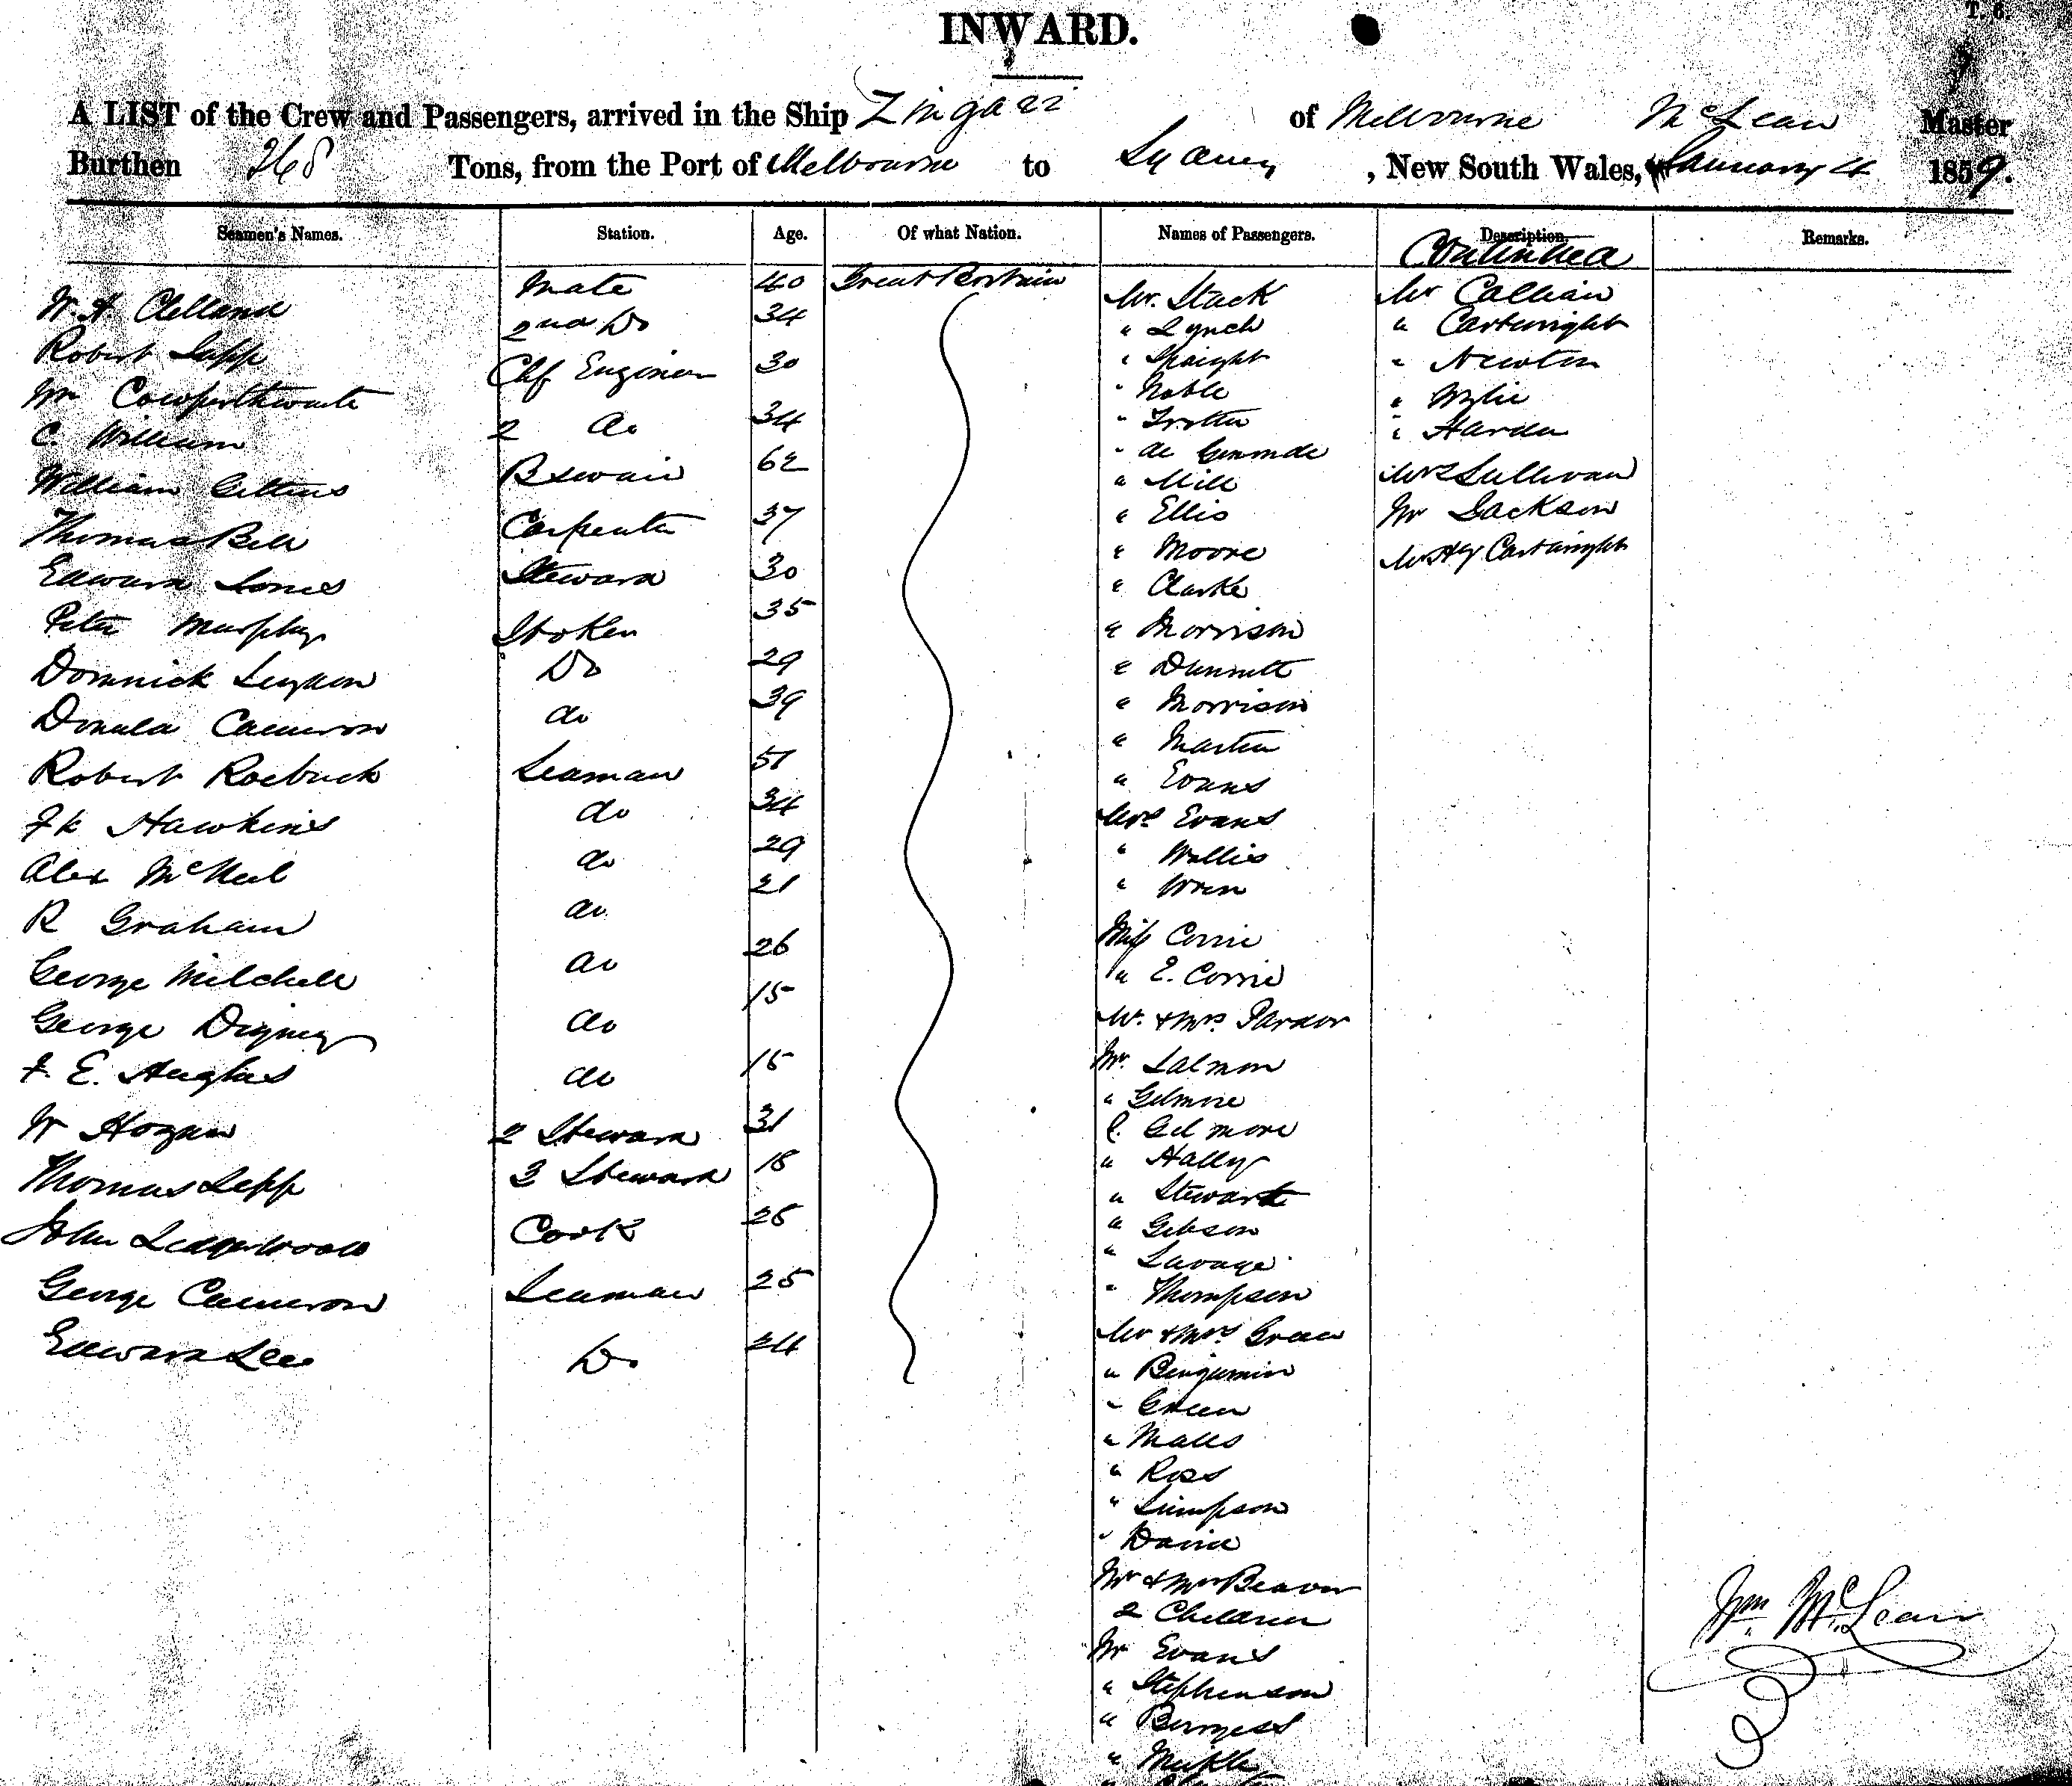 T. 6.
INWARD.
A LIST of the Crew and Passengers, arrived in the Ship Zingari of Melbourne McLean Master
Burthen 268 Tons, from the Port of Melbourne to Sydney, New South Wales, January 4 1859.
Seamen's Names. Station. Age. Of what Nation. Names of Passengers. Description. Remarks.
Continued
W. A Clelland Mate 40 Great Britain
Robert Lapp 2nd Do 34
Wm Cowperthwaite Chf Engineer 30
C William 2 do 34
William Gittins Bswain 62
Thomas Bell Carpenter 37
Edward Jones Steward 30
Peter Murphy Stoker 35
Domnick Do 29
Donald Cameron do 39
Robert Roebuck Seaman 51
Fk Hawkins do 34
Alex McNeil do 29
R Graham do 21
George Mitchell do 26
George Digney do 15
F. E. Hughes do 15
W Hogan 2 Steward 31
Thomas Lepp 3 Steward 18
John Ledgerwood Cook 25
George Cameron Seaman 25
Edward Lee Do 24
Mr. Stack
" Lynch
" Speight
" Noble
" Trotter
" de
" Mill
" Ellis
" Moore
" Clarke
" Morrison
" Dunnett
" Morrison
" Martin
" Evans
Mrs Evans
" Wallis
" Wren
Miss Corrie
" E. Corrie
Mr. & Mrs. Pardor
Mr. Salmon
" Gilmore
C. Gilmore
" Hally
" Stewart
" Gibson
" Savage
" Thompson
Mr & Mrs Green
" Benjamin
" Green
" Malls
" Ross
" Simpson
" David
Mr & Mrs Beaver
2 Children
Mr Evans
" Stephenson
" Burgess
" Meikle
Mr Callian
" Cartwright
" Newton
" Wylie
" Harden
Mrs Sullivan
Mr Jackson
Mr Hy Cartwright
Wm. McLean